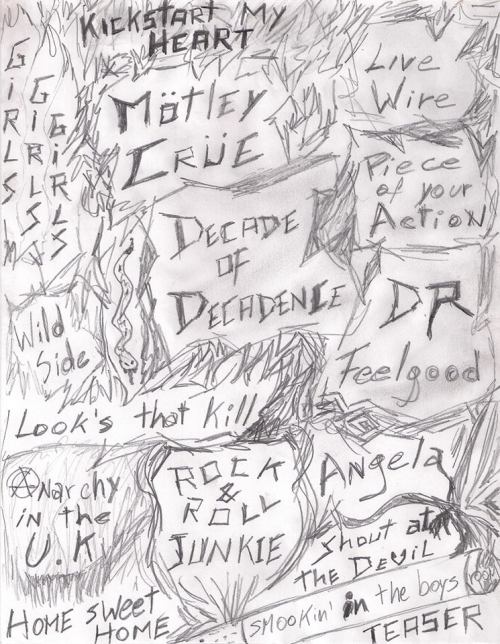 KICKSTART MY
HEART
GIRLS
GIRLS
GIRLS
Mötley
CRÜE
Live
Wire
Piece
of your
Action
DECADE
OF
DECADENCE
DR
Feelgood
Wild
Side
Look's that kill
Anarchy
in the
U.K
ROCK
&
ROLL
JUNKIE
Angela
Shout at
the Devil
HOME SWEET
HOME
SMOKIN' in the boys room
TEASER